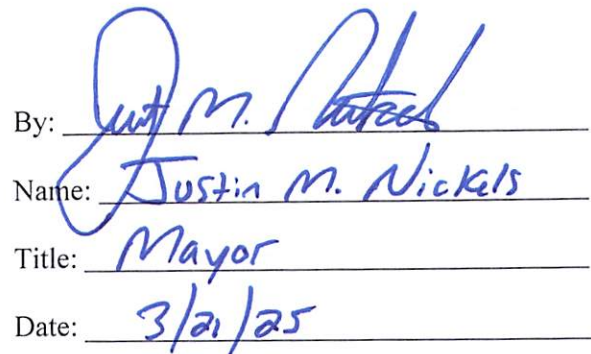 By: Justin M. Nickels
Name: Justin M. Nickels
Title: Mayor
Date: 3/21/25